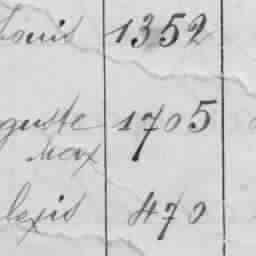 Louis 1352
guste 1705
Max
lexis 470